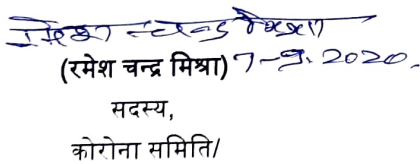 रमेश चन्द्र मिश्रा
(रमेश चन्द्र मिश्रा) 7-9.2020.
सदस्य,
कोरोना समिति/